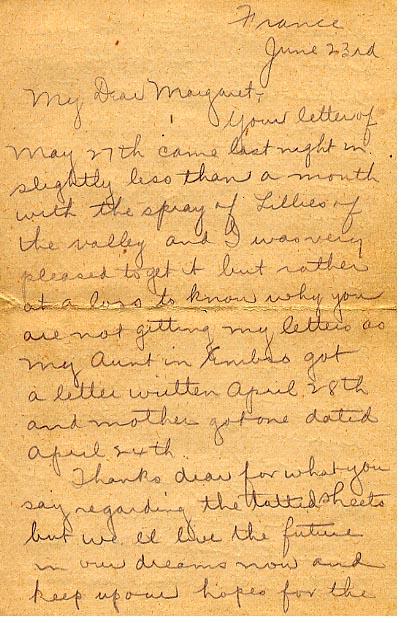 France
June 23rd
My Dear Margaret,
Your letter of
May 27th came last night in
slightly less than a month
with the spray of Lillies of
the valley and I was very
pleased to get it but rather
at a loss to know why you
are not getting my letters as
my Aunt in got
a letter written April 28th
and mother got one dated
April 24th
Thanks dear for what you
say regarding the tatted sheets
but we'll live the future
in our dreams now and
keep up our hopes for the